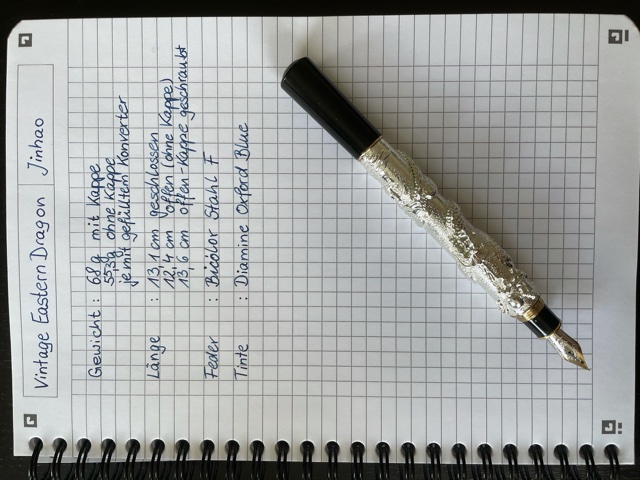 Vintage Eastern Dragon Jinhao
Gewicht : 68 g mit Kappe
53,3g ohne Kappe
je mit gefülltem Konverter
Länge : 13,1 cm geschlossen
12,4 cm offen (ohne Kappe)
13,6 cm offen-Kappe geschraubt
Feder : Bicolor Stahl F
Tinte : Diamine Oxford Blue